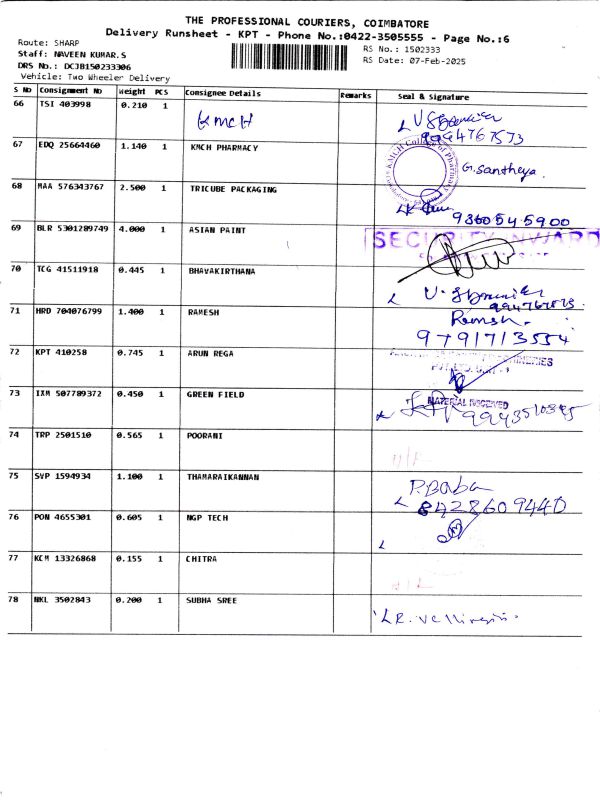 THE PROFESSIONAL COURIERS, COIMBATORE
Delivery Runsheet - KPT - Phone No.:0422-3505555 - Page No.:6
Route: SHARP
RS No.: 1502333
Staff: NAVEEN KUMAR.S
RS Date: 07-Feb-2025
DRS No.: DCJB150233306
Vehicle: Two Wheeler Delivery
S No Consignment No Weight PCS Consignee Details Remarks Seal & Signature
66 TSI 403998 0.210 1 KMCH
9994767573
67 EDQ 25664460 1.140 1 KMCH PHARMACY
KMCH College of Pharmacy
G. Santheya.
68 MAA 576343767 2.500 1 TRICUBE PACKAGING
9360545900
69 BLR 5301289749 4.000 1 ASIAN PAINT
SECURITY INWARD
70 TCG 41511918 0.445 1 BHAVAKIRTHANA
71 HRD 704076799 1.400 1 RAMESH
Ramesh.
9791713554
72 KPT 410258 0.745 1 ARUN REGA
73 IXM 507789372 0.450 1 GREEN FIELD
MATERIAL RECEIVED
74 TRP 2501510 0.565 1 POORANI
75 SVP 1594934 1.100 1 THAMARAIKANNAN
P. Baba
8428609440
76 PON 4655301 0.605 1 NGP TECH
77 KCM 13326868 0.155 1 CHITRA
78 NKL 3502843 0.200 1 SUBHA SREE